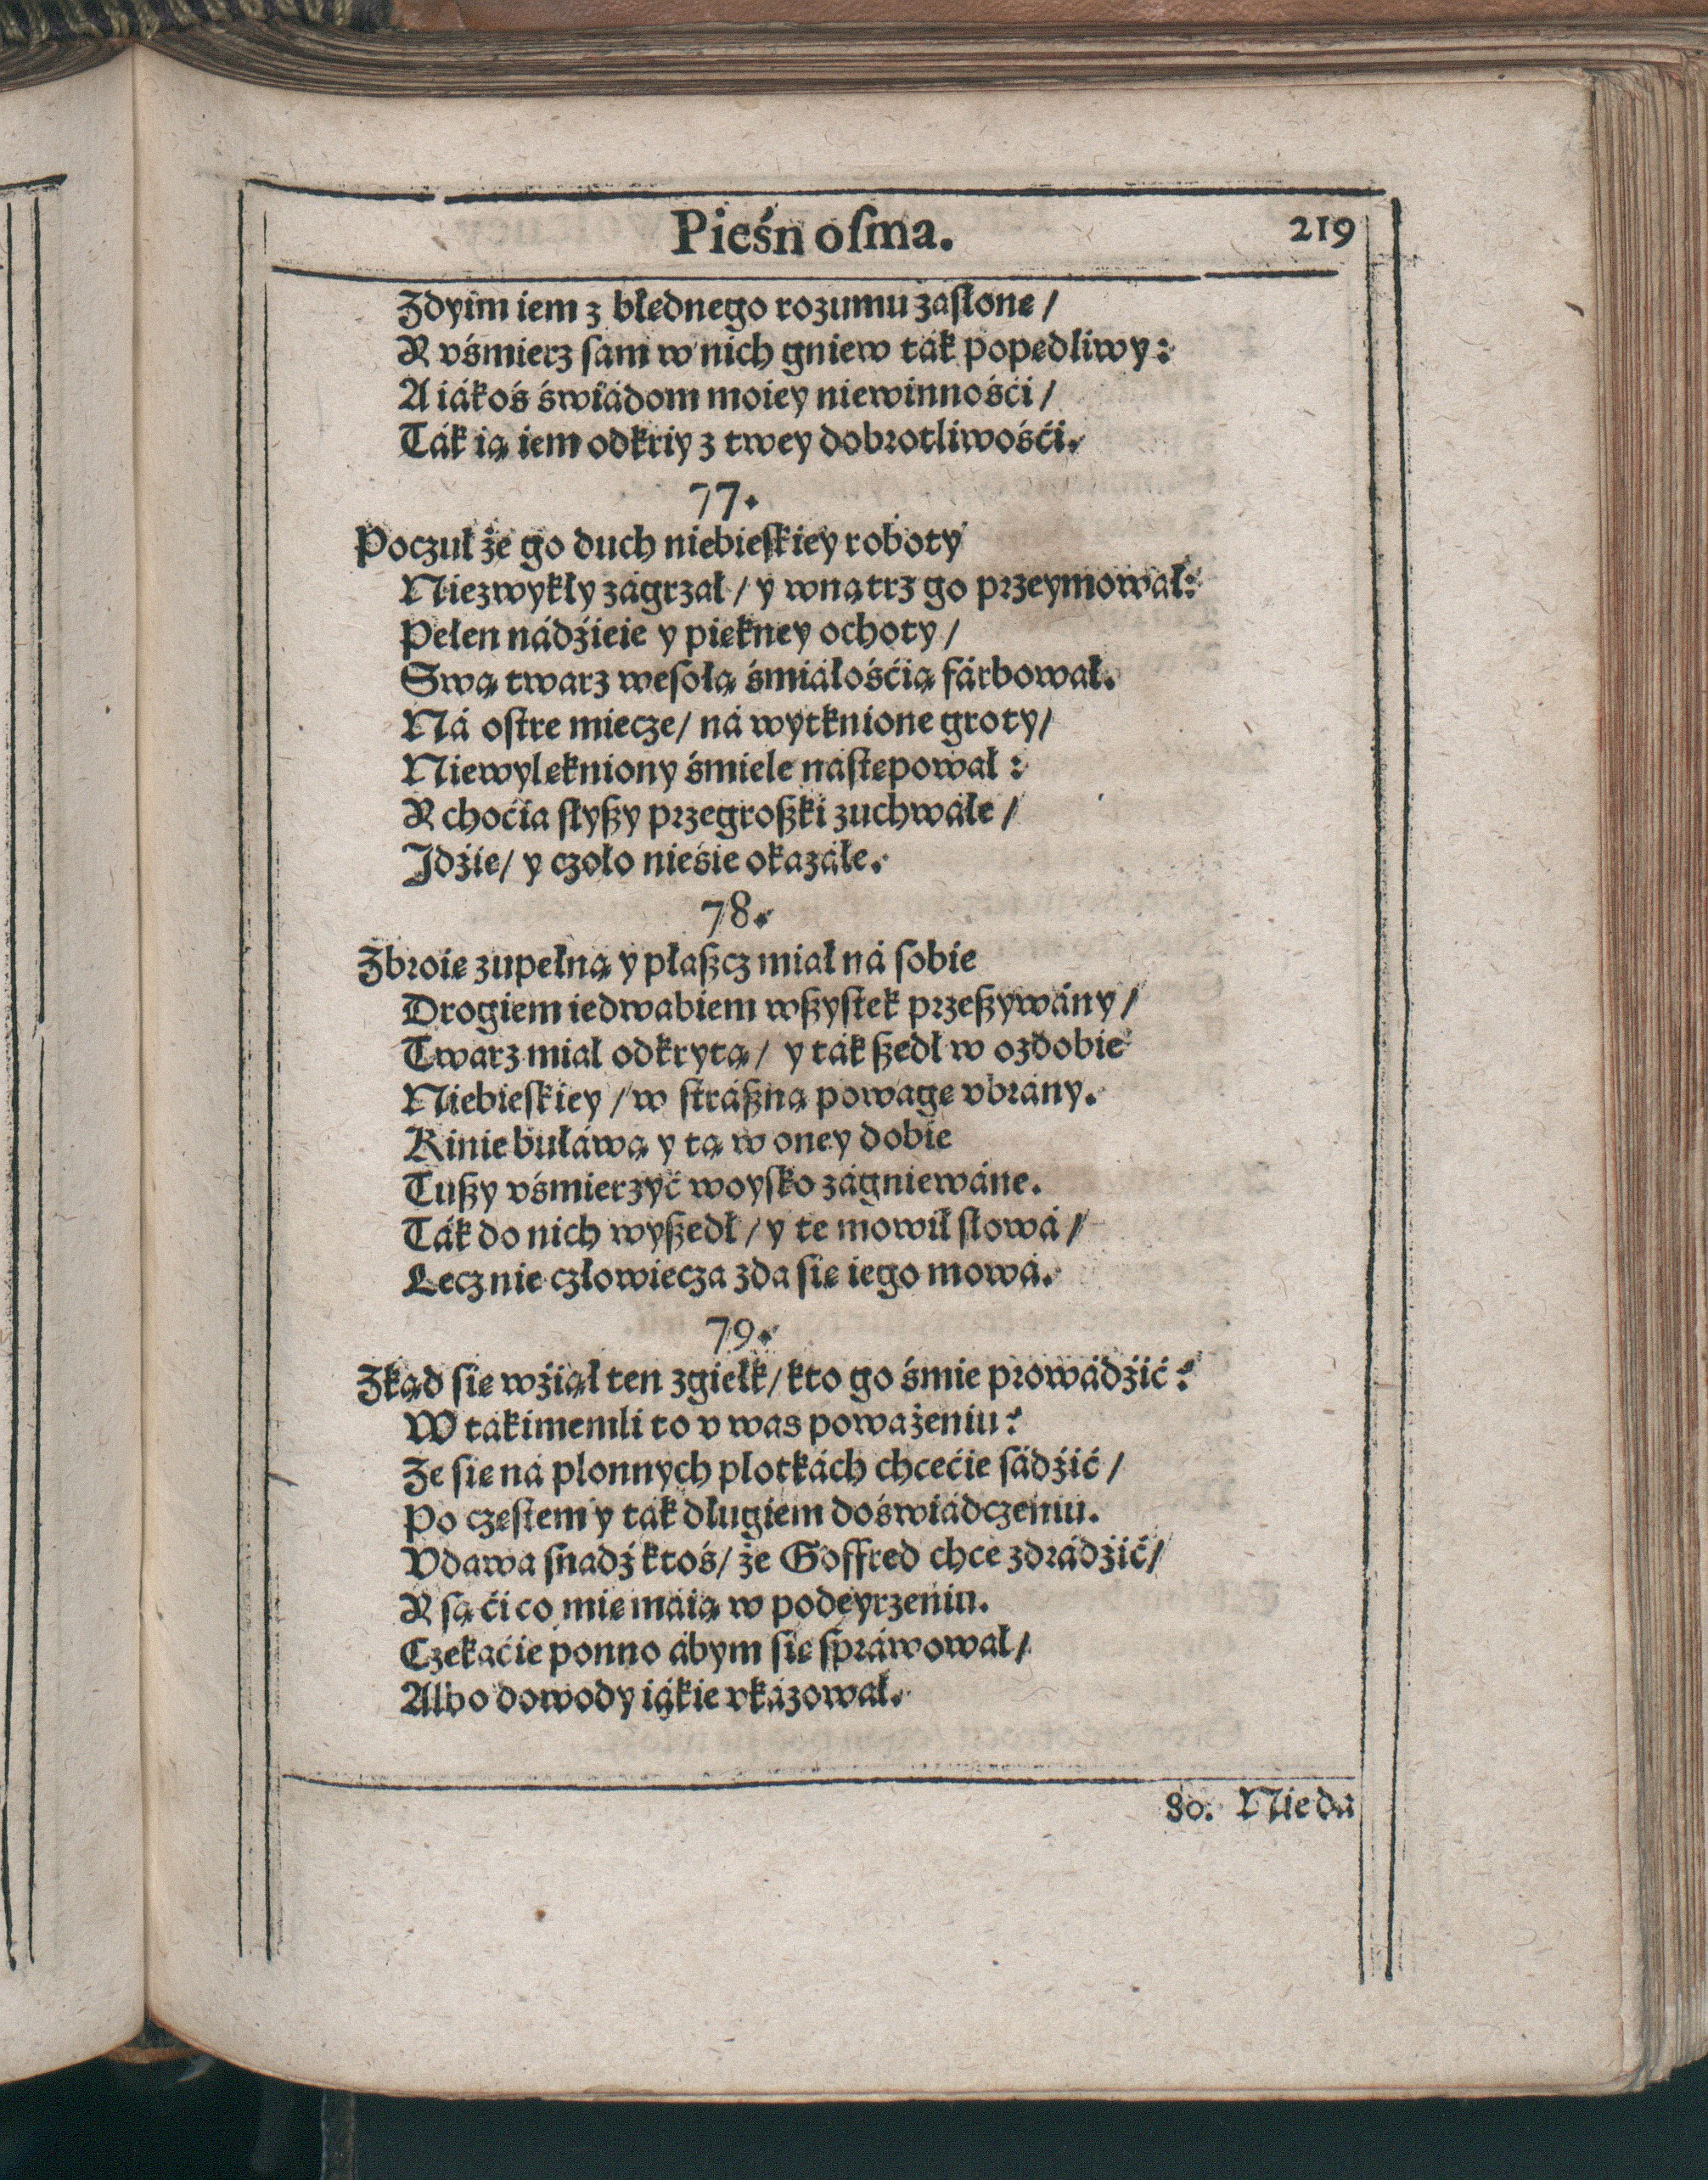 Pieśń oſma.
219
Zdyim iem z błędnego rozumu zaſłonę /
Y vśmierz ſam w nich gniew ták popędliwy:
A iákoś świádom moiey niewinnośći /
Ták ią iem odkriy z twey dobrotliwośći.
77.
Poczuł że go duch niebieſkiey roboty
Niezwykły zágrzał / y wnątrz go przeymował:
Pełen nádźieie y piękney ochoty /
Swą twarz weſołą śmiáłośćią fárbował.
Ná oſtre miecze / ná wytknione groty /
Niewylękniony śmiele náſtępował:
Y choćia ſłyßy przegroßki zuchwáłe /
Jdźie / y czoło nieśie okazáłe.
78.
Zbroię zupełną y płaßcz miał ná ſobie
Drogiem iedwabiem wßyſtek przeßywány /
Twarz miał odkrytą / y ták ßedł w ozdobie
Niebieſkiey / w ſtráßną powagę vbrány.
Kinie buławą y tą w oney dobie
Tußy vśmierzyć woyſko zágniewáne.
Ták do nich wyßedł / y te mowił ſłowá /
Lecz nie człowiecza zda ſię iego mowá.
79.
Zkąd ſię wźiął ten zgiełk / kto go śmie prowádźić?
W tákimemli to v was poważeniu?
Że ſię ná płonnych plotkách chcećie ſádźić /
Po częſtem y ták długiem doświádczeniu.
Vdawa ſnadź ktoś / że Goffred chce zdrádźić /
Y ſą ći co mię máią w podeyrzeniu.
Czekaćie ponno ábym ſię ſpráwował /
Albo dowody iákie vkázował.
80. Nie da